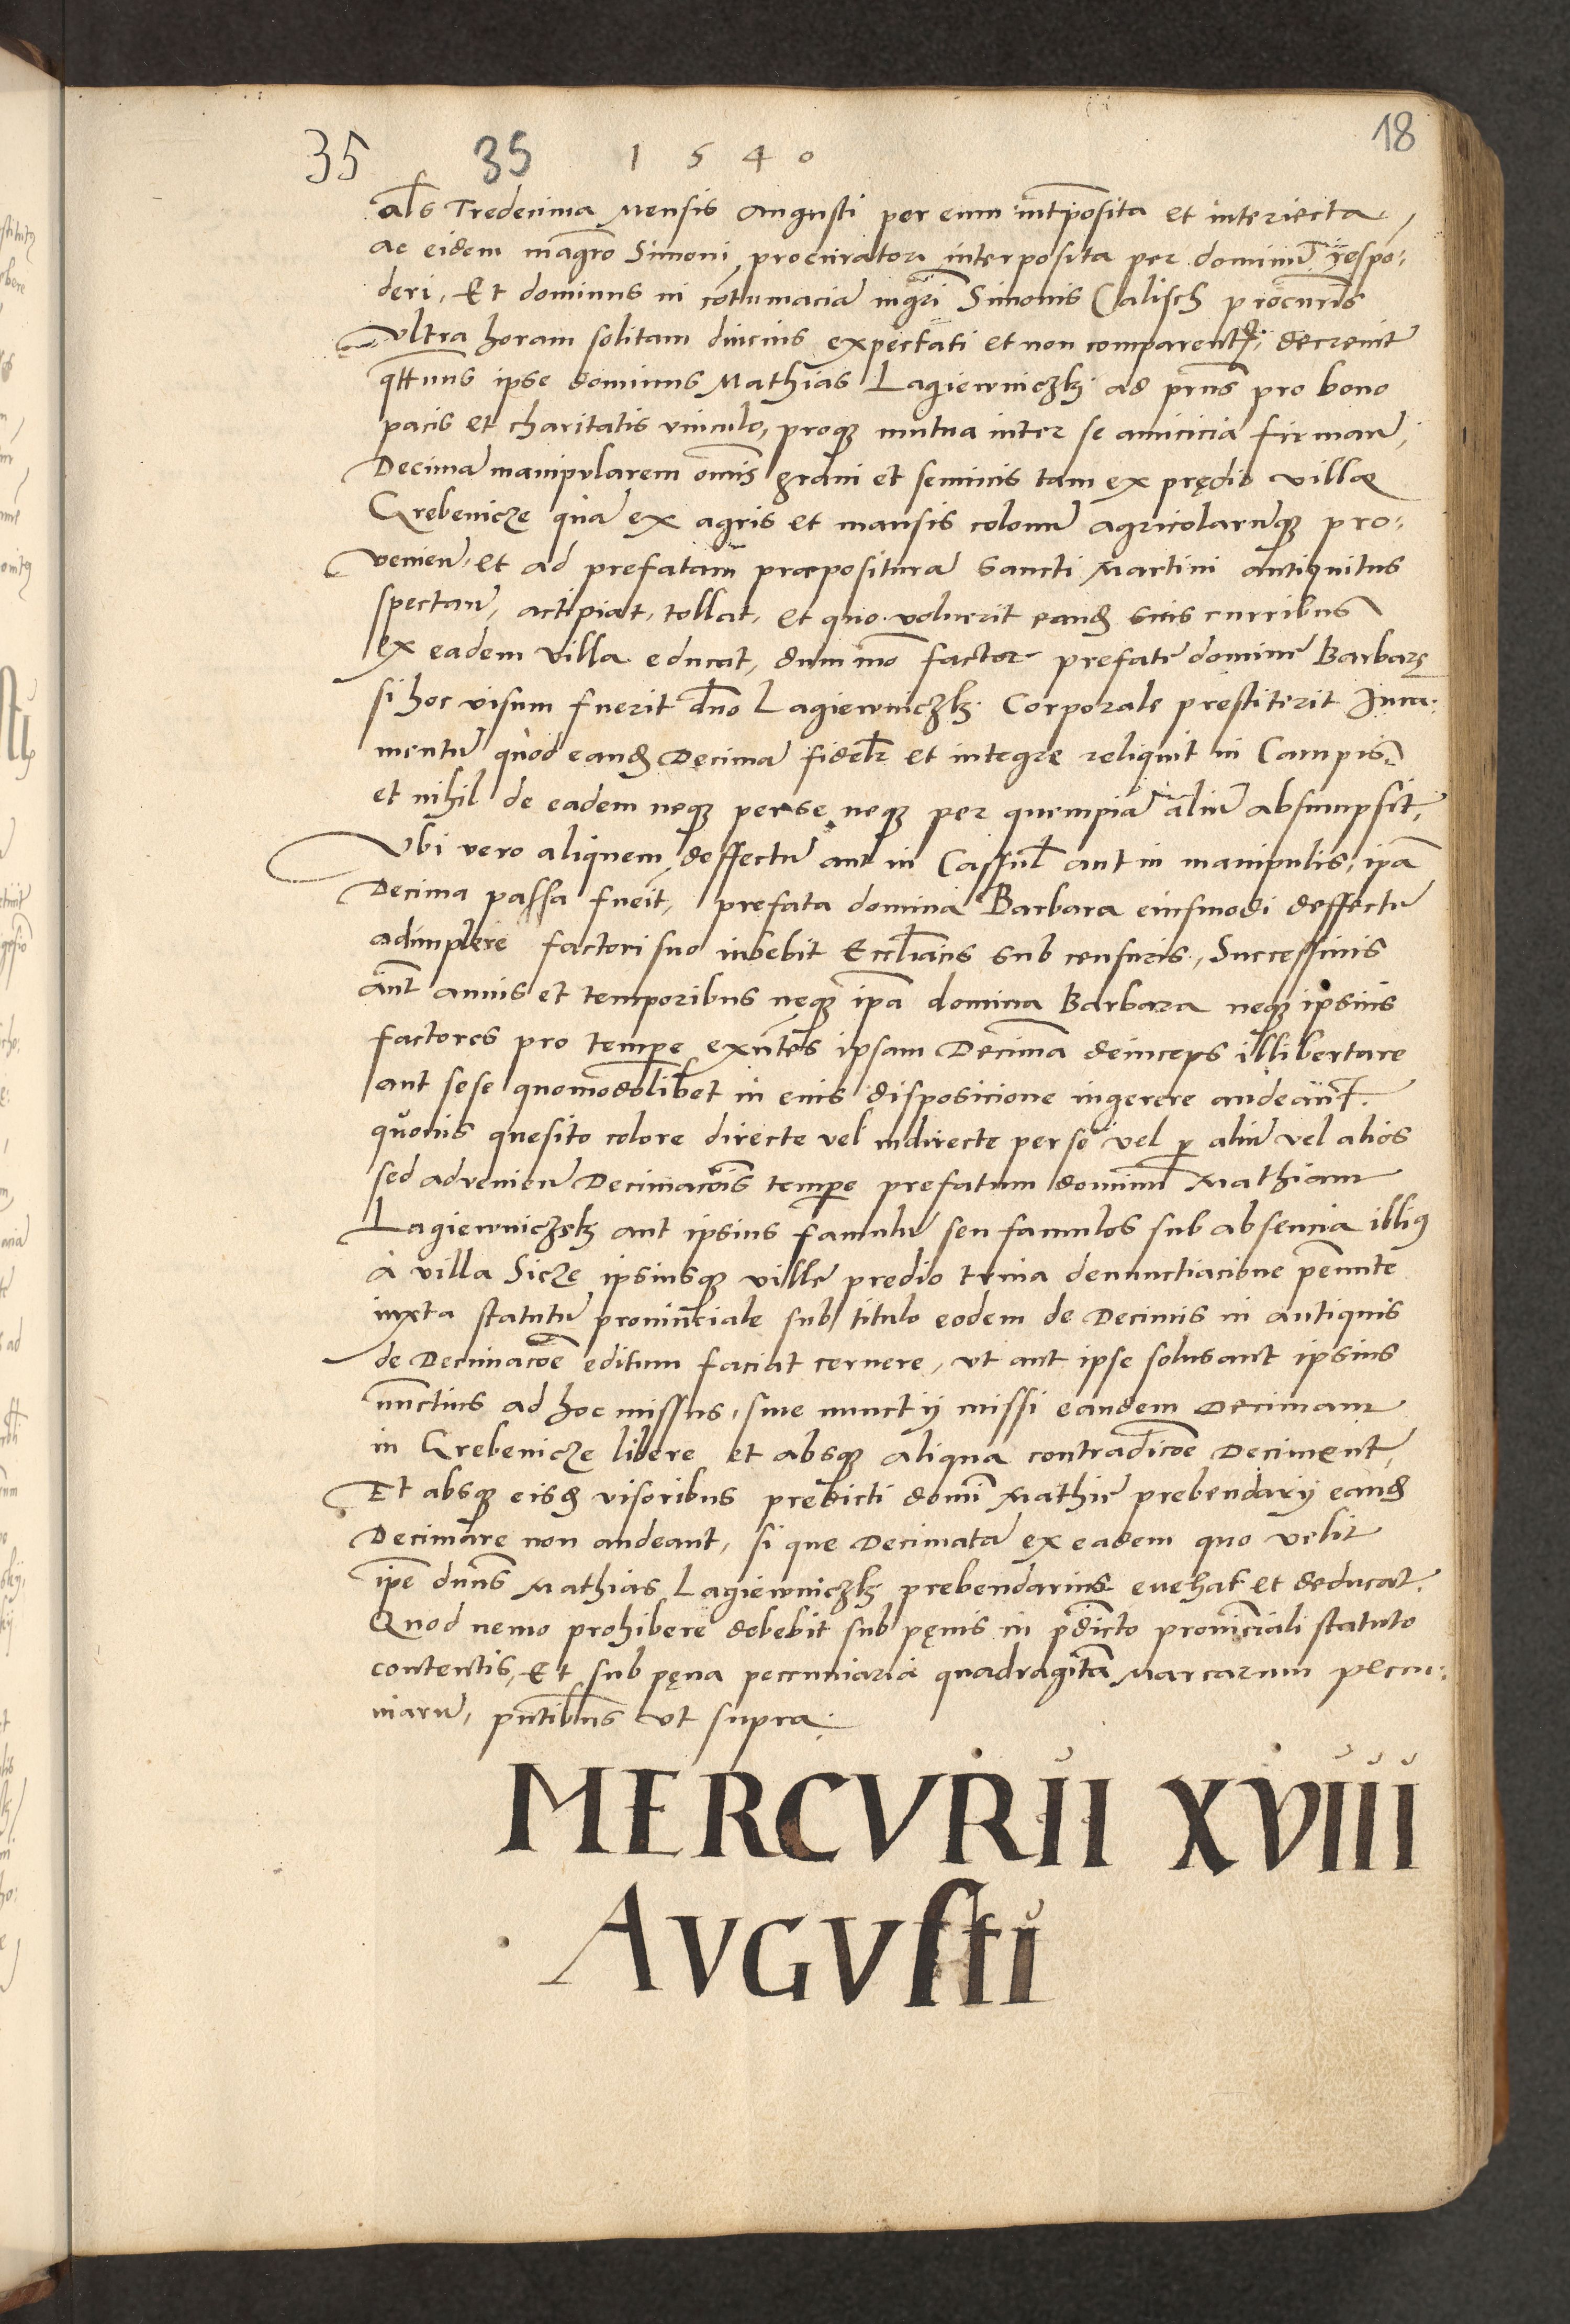 35 35 1 5 4 0 18
als Tredecima Mensis Augusti per eum intposita et interiecta,
ac eidem magro Simoni procuratori interposita per dominū respo:
deri, Et dominus in cōtumaciā mgri Simonis Calisch procuris
vltra horam solitam diucius expectati et non comparentis, decreuit
qttnus ipse dominus Mathias Lagiewniczky ad prns pro bono
pacis et charitatis vinculo, proq; mutua inter se amicicia firman,
Decimā manipularem omis grani et seminis tam ex prędio villæ
Grebenicze quā ex agris et mansis colonū agricolarūq; pro:
venien, et ad prefatam præposituram Sancti Martini antiquitus
spectan, accipiat, tollat, et quo voluerit eand suis curribus
ex eadem villa educat, dummo factor prefatę dominę Barbarę
si hoc visum fuerit dno Lagiewniczky Corporale prestiterit Jura:
mentū quod eand Decimā fidelr et integre reliquit in Campis,
et nihil de eadem neq; per se neq; per quempiā aliū absumpsit,
Vbi vero aliquem deffectū aut in Cassul aut in manipulis, ipā
Decima passa fueit, prefata domina Barbara eiusmodi deffectū
adimplere factori suo iubebit Eccliacis sub censuris, Successiuis
aūt annis et temporibus neq; ipā domina Barbara neq; ipsius
factores pro tempe exntes ipsam Decimā deinceps illibertare
aut sese quomodolibet in eius disposicione ingerere audeant.
quouis quesito colore directe vel indirecte per se vel p aliū vel alios
sed advenien Decimacois tempe prefatum dominū Mathiam
Lagiewniczky aut ipsius famulū seu famulos sub absencia illiꝰ
à villa Sicze ipsiusq; villę predio trina denunctiacione pmnte
iuxta statutū prouinciale sub titulo eodem de Decimis in antiquis
de Decimacoe editum faciat cernere, vt aut ipse solus aut ipsius
nunctius ad hoc missus, siue nunctij missi eandem Decimam
in Grebenicze libere et absq; aliqua contradicoe Deciment,
Et absq; eisd visoribus predicti domi Mathie prebendarij eand
Decimare non audeant, si que Decimata ex eadem quo velit
ipē dnns Mathias Lagiewniczky prebendarius euehat et deducat.
Quod nemo prohibere debebit sub pęnis in pdicto prouinciali statuto
contentis, Et sub pęna peccuniaria quadraginta Marcarum pecu:
niarū, pntibus vt supra.
MERCVRII XVIIII
AVGVSTI